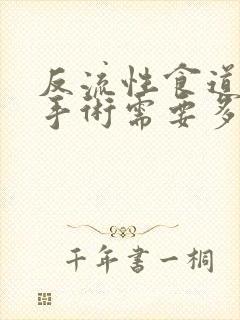 反流性食道
手術需要多
千年書一桐